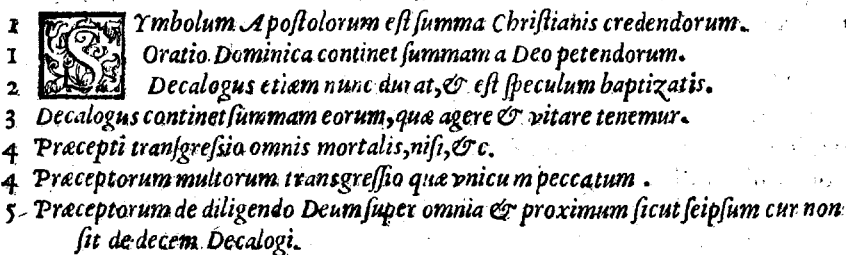 1 SYmbolum Apoſtolorum eſt ſumma Chriſtianis credendorum.
1 Oratio Dominica continet ſummam a Deo petendorum.
2 Decalogus etiam nunc durat, & eſt ſpeculum baptizatis.
3 Decalogus continet ſummam eorum, quæ agere & vitare tenemur.
4 Præcepti tranſgreſsio omnis mortalis, niſi, & c.
4 Præceptorum multorum transgreſſio quæ vnicum peccatum .
5 Præceptorum de diligendo Deum ſuper omnia & proximum ſicut ſeipſum cur non
ſit de decem Decalogi.